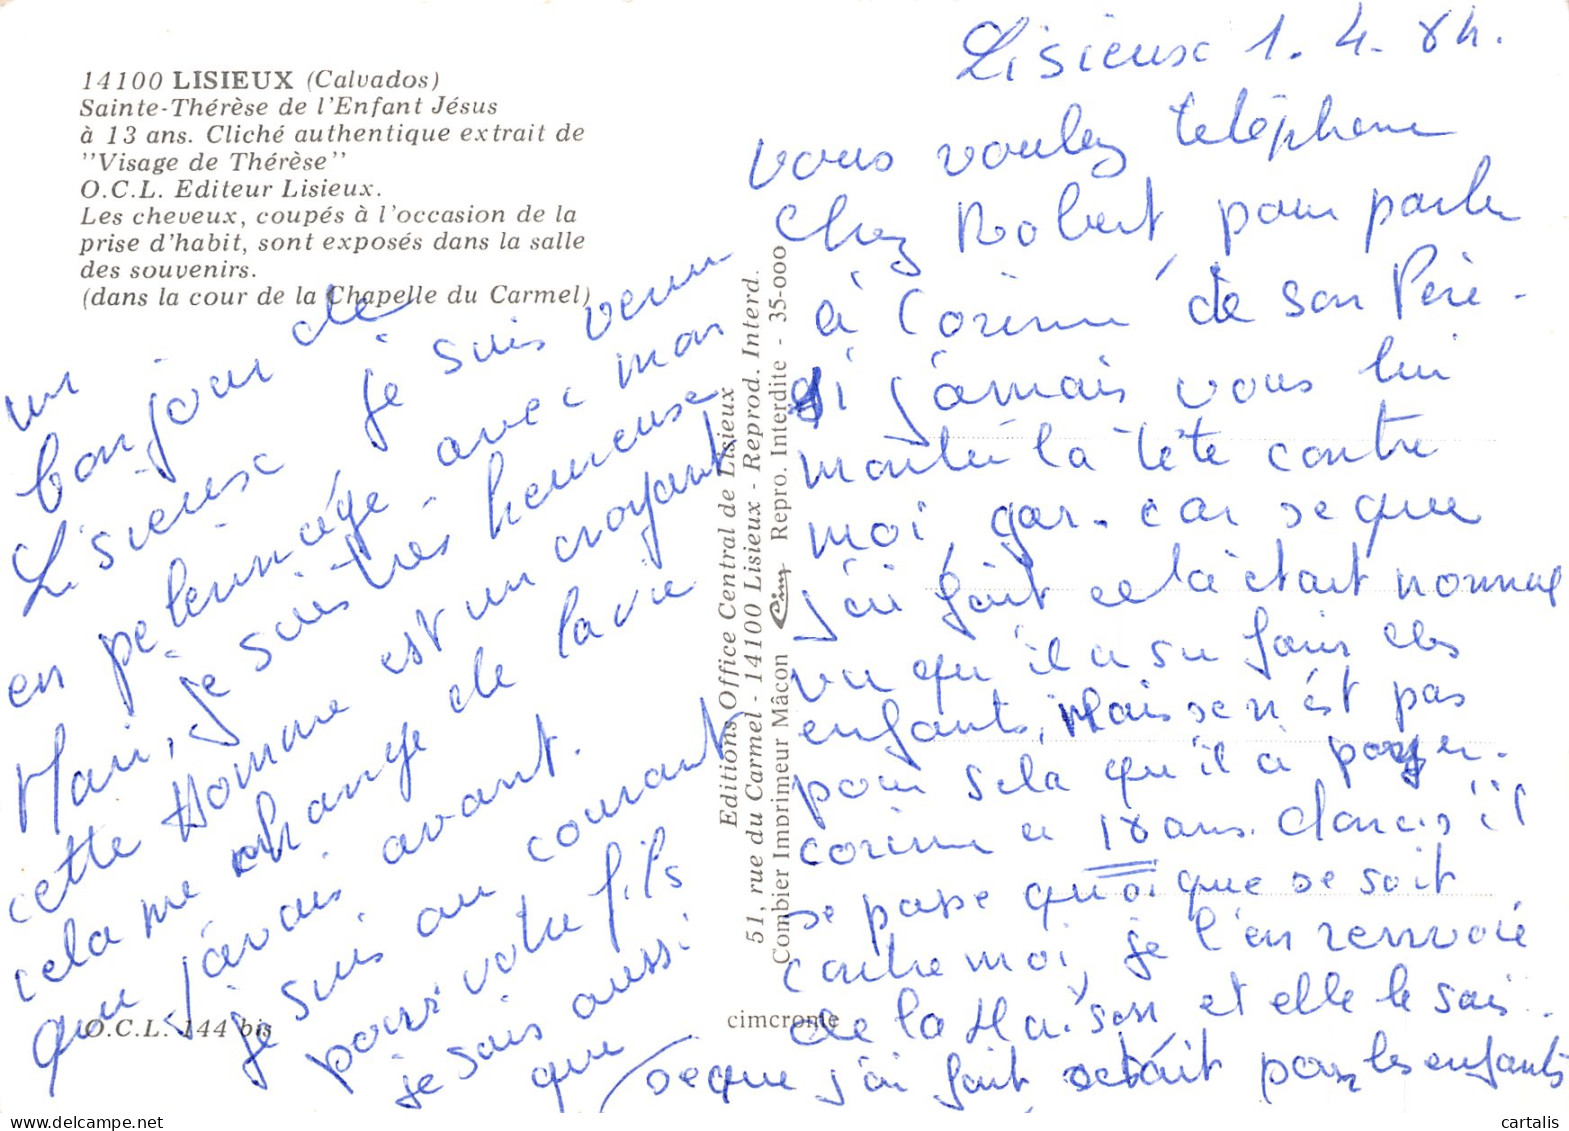 14100 LISIEUX (Calvados)
Sainte-Thérèse de l'Enfant Jésus
à 13 ans. Cliché authentique extrait de
"Visage de Thérèse"
O.C.L. Editeur Lisieux.
Les cheveux, coupés à l'occasion de la
prise d'habit, sont exposés dans la salle
des souvenirs.
(dans la cour de la Chapelle du Carmel)
un
bonjour de
Lisieux je suis venu
en pelerinage avec mon
Mari, je suis très heureuse
cette Homme est un croyant
cela me change de la vie
que j'avais avant.
je suis au courant
pour votre fils
je sais aussi
que
O.C.L. 144 bis
Editions Office Central de Lisieux
51, rue du Carmel - 14100 Lisieux - Reprod. Interd.
Combier Imprimeur Mâcon Cim Repro. Interdite - 35-000
cimcrome
Lisieux 1. 4. 84.
vous voulez telephone
chez Robert, pour parler
à Corinne, de son Père -
si jamais vous lui
monter la tête contre
moi, gar. car se que
j'ai fait cela était normal
vu qu'il a su faire des
enfants, Mais se n'est pas
pour sela qu'il a payer.
corinne a 18 ans. dans il
se passe quoi que se soit
contre moi, je l'en renvoie
de la Maison et elle le sais.
seque j'ai fait setait pour les enfants
cartalis